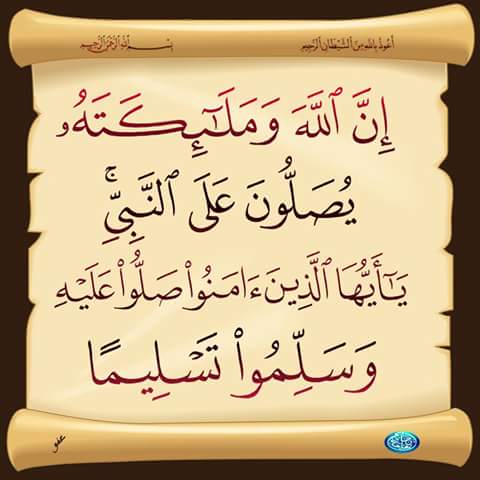 أعوذ بالله من الشيطان الرجيم
بسم الله الرحمن الرحيم
إِنَّ ٱللَّهَ وَمَلَـٰٓئِكَتَهُۥ
يُصَلُّونَ عَلَى ٱلنَّبِىِّ ۚ
يَـٰٓأَيُّهَا ٱلَّذِينَ ءَامَنُوا۟ صَلُّوا۟ عَلَيْهِ
وَسَلِّمُوا۟ تَسْلِيمًا